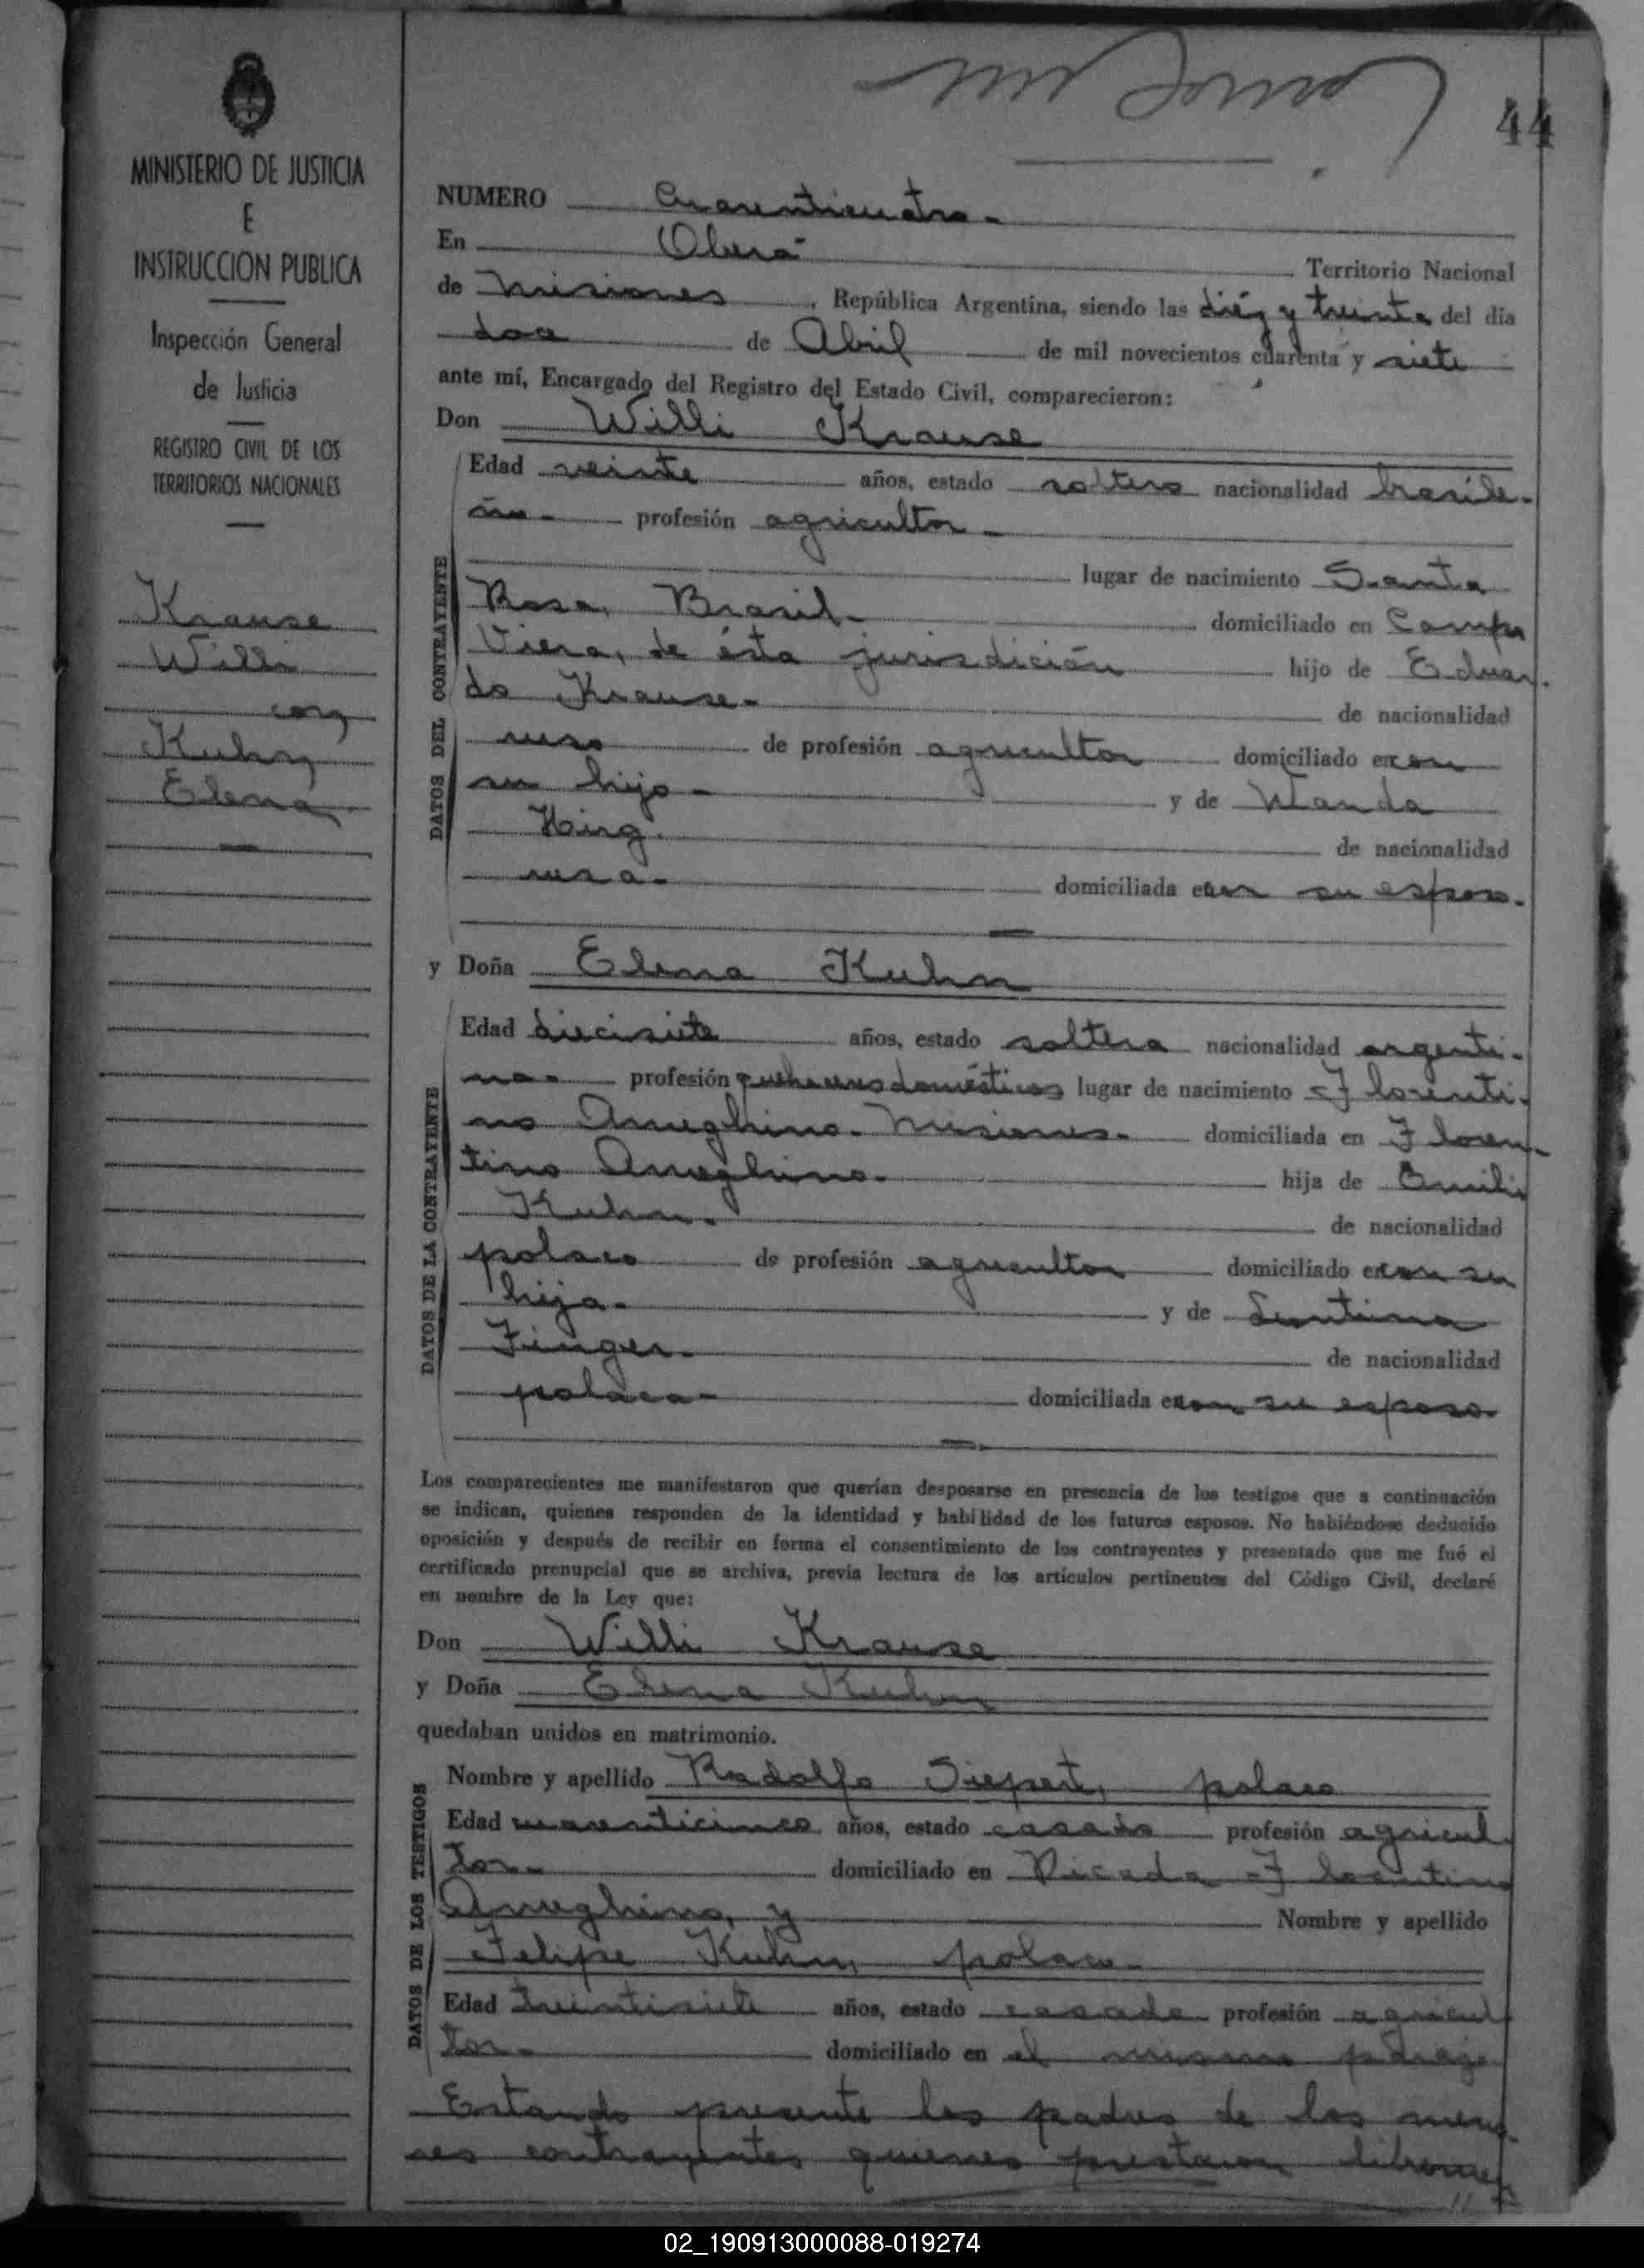 44
MINISTERIO DE JUSTICIA
E
INSTRUCCION PUBLICA
Inspección General
de Justicia
REGISTRO CIVIL DE LOS
TERRITORIOS NACIONALES
Krause
Willi
con
Kuhn
Elena
NUMERO Cuarenticuatro-
En Oberá- Territorio Nacional
de Misiones, República Argentina, siendo las diéz y treinta del día
dos de Abril de mil novecientos cuarenta y siete
ante mí, Encargado del Registro del Estado Civil, comparecieron:
Don Willi Krause
DATOS DEL CONTRAYENTE
Edad veinte años, estado soltero nacionalidad brasile-
ña- profesión agricultor-
lugar de nacimiento Santa
Rosa, Brasil- domiciliado en Campo
Viera, de ésta jurisdición hijo de Eduar-
do Krause- de nacionalidad
ruso de profesión agricultor domiciliado con
su hijo- y de Wanda
de nacionalidad
rusa- domiciliada con su esposo-
y Doña Elena Kuhn
DATOS DE LA CONTRAYENTE
Edad diecisiete años, estado soltera nacionalidad argenti-
na- profesión quehaceres domésticos lugar de nacimiento Florenti-
no Ameghino- Misiones- domiciliada en Floren-
tino Ameghino- hija de Emilio
Kuhn- de nacionalidad
polaco de profesión agricultor domiciliado con su
hija- y de
Finger- de nacionalidad
polaca- domiciliada con su esposo-
Los comparecientes me manifestaron que querían desposarse en presencia de los testigos que a continuación
se indican, quienes responden de la identidad y habilidad de los futuros esposos. No habiéndose deducido
oposición y después de recibir en forma el consentimiento de los contrayentes y presentado que me fué el
certificado prenupcial que se archiva, previa lectura de los artículos pertinentes del Código Civil, declaré
en nombre de la Ley que:
Don Willi Krause
y Doña Elena Kuhn
quedaban unidos en matrimonio.
DATOS DE LOS TESTIGOS
Nombre y apellido Rodolfo Siepert, polaco
Edad cuarenticinco años, estado casado profesión agricul-
tor- domiciliado en Picada Florentino
Ameghino, y Nombre y apellido
Felipe Kuhn, polaco-
Edad treintisiete años, estado casado profesión agricul
tor- domiciliado en el mismo paraje
Estando presente los padres de los meno-
res contrayentes quienes prestaron libremen
02_190913000088-019274